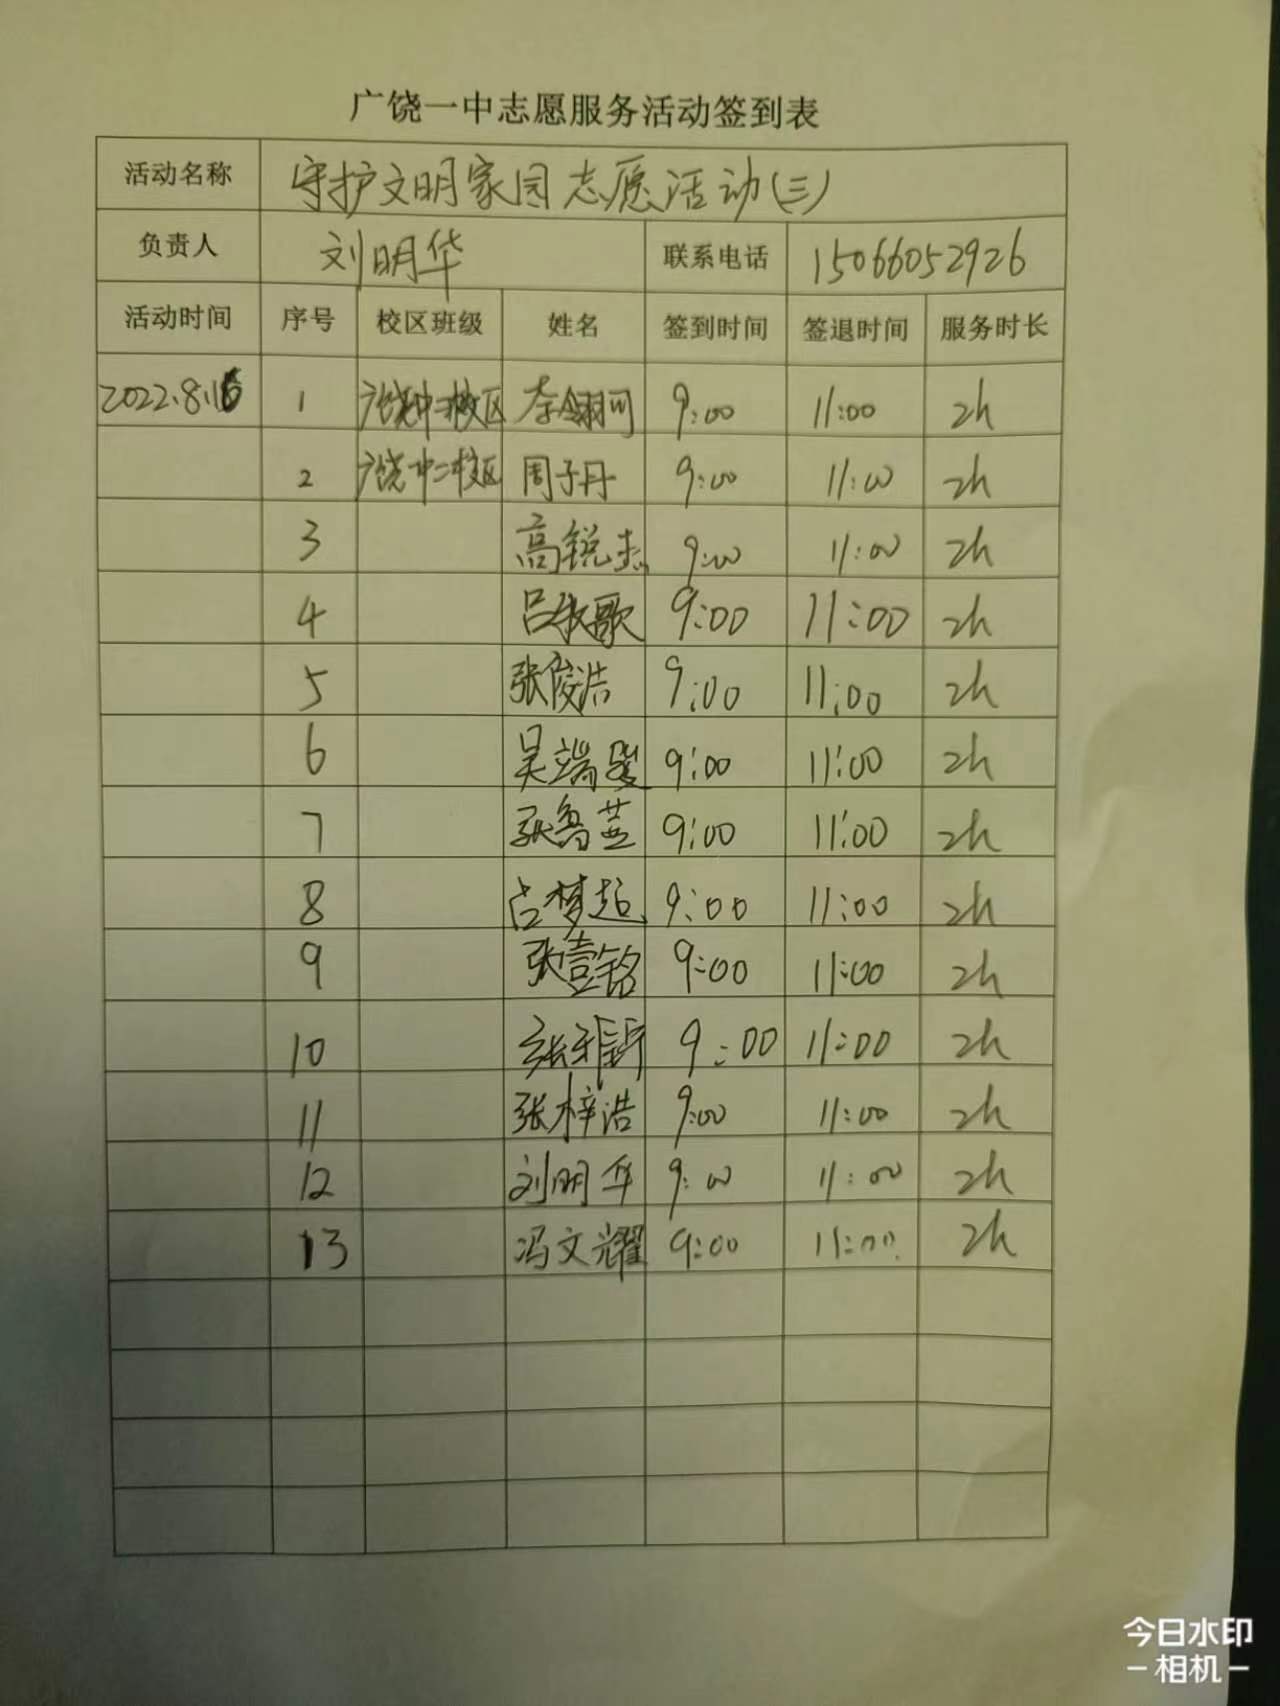 广饶一中志愿服务活动签到表
活动名称 守护文明家园志愿活动(三)
负责人 刘明华 联系电话 15066052926
活动时间 序号 校区班级 姓名 签到时间 签退时间 服务时长
2022.8.16 1 广饶一中二校区 李翎可 9:00 11:00 2h
2 广饶一中二校区 周子丹 9:00 11:00 2h
3 高锐志 9:00 11:00 2h
4 吕牧歌 9:00 11:00 2h
5 张俊浩 9:00 11:00 2h
6 吴端 9:00 11:00 2h
7 张鲁芸 9:00 11:00 2h
8 古梦起 9:00 11:00 2h
9 张壹铭 9:00 11:00 2h
10 张 9:00 11:00 2h
11 张梓浩 9:00 11:00 2h
12 刘明华 9:00 11:00 2h
13 冯文耀 9:00 11:00 2h
今日水印
相机